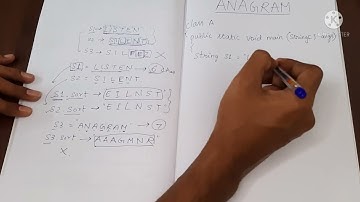 S1 = LISTEN
S2 = SILENT
S3 = SILFEE X
S1 = LISTEN → 6
S2 = SILENT
S1.sort → 'EILNST'
S2.sort → 'EILNST'
S3 = 'ANAGRAM' → 7
S3.sort → 'AAAGMNR'
X
ANAGRAM
class A
{
public static void main (String[] args)
{
string S1 = "L